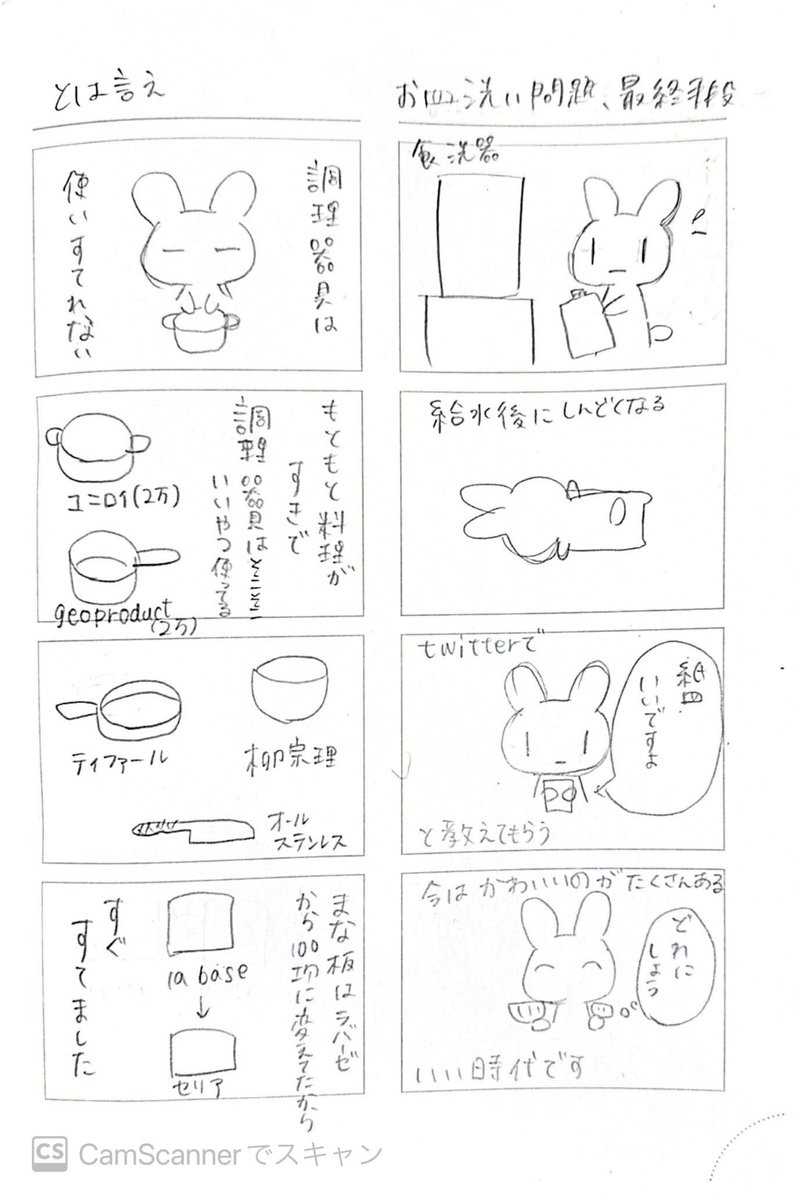 お皿洗い問題、最終手段
食洗器
給水後にしんどくなる
twitterで
紙皿
いいですよ
と教えてもらう
今はかわいいのがたくさんある
どれに
しよう
いい時代です
とは言え
調理器具は
使いすてれない
もともと料理が
すきで
調理器具は
いいやつ使ってる
ユニロイ(2万)
geoproduct
(2万)
ティファール
柳宗理
オール
ステンレス
まな板はラバーゼ
から100均に変えてたから
la base
↓
セリア
すぐ
すてました
CS CamScannerでスキャン